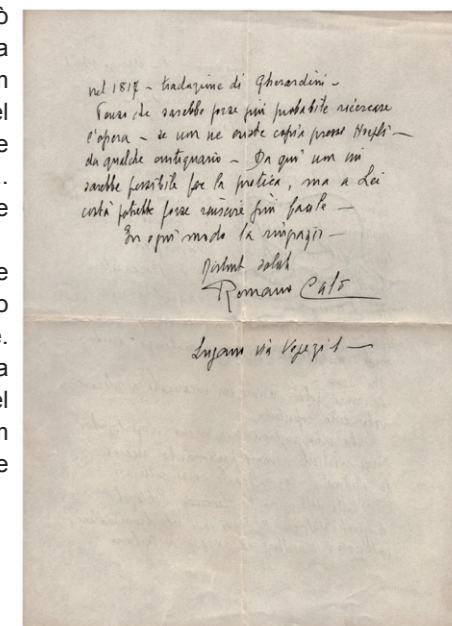 ò
a
n
el
e
.
e
e
o
e.
a
el
n
e
nel 1817 – traduzione di Gherardini –
Penso che sarebbe forse più probabile ricercare
l'opera – se non ne esiste copia presso Hoepli –
da qualche antiquario – Da qui non mi
sarebbe possibile far la pratica, ma a Lei
costà potrebbe forse riuscire più facile –
In ogni modo la ringrazio –
Distinti saluti
Romano Calò
Lugano via